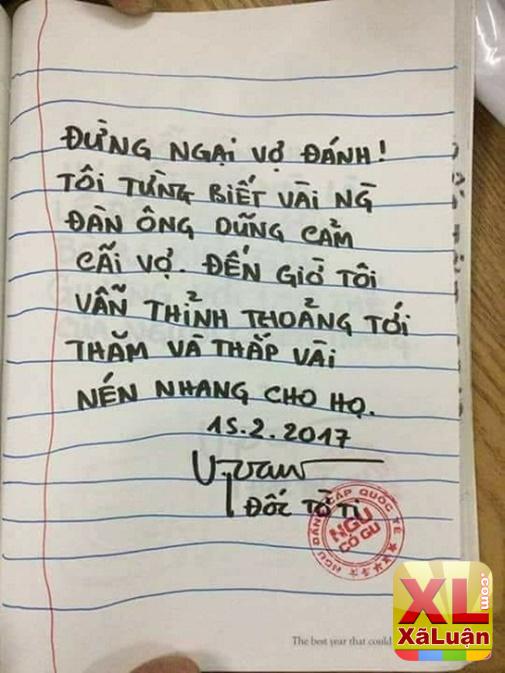 ĐỪNG NGẠI VỢ ĐÁNH!
TÔI TỪNG BIẾT VÀI NG̀
ĐÀN ÔNG DŨNG CẢM
CÃI VỢ. ĐẾN GIỜ TÔI
VẪN THỈNH THOẢNG TỚI
THĂM VÀ THẮP VÀI
NÉN NHANG CHO HỌ.
15.2.2017
ĐỐC TỜ TI
NGU DÂN CẤP QUỐC TẾ
NGU
CÓ GU
The best year that could
XL.com
XãLuận